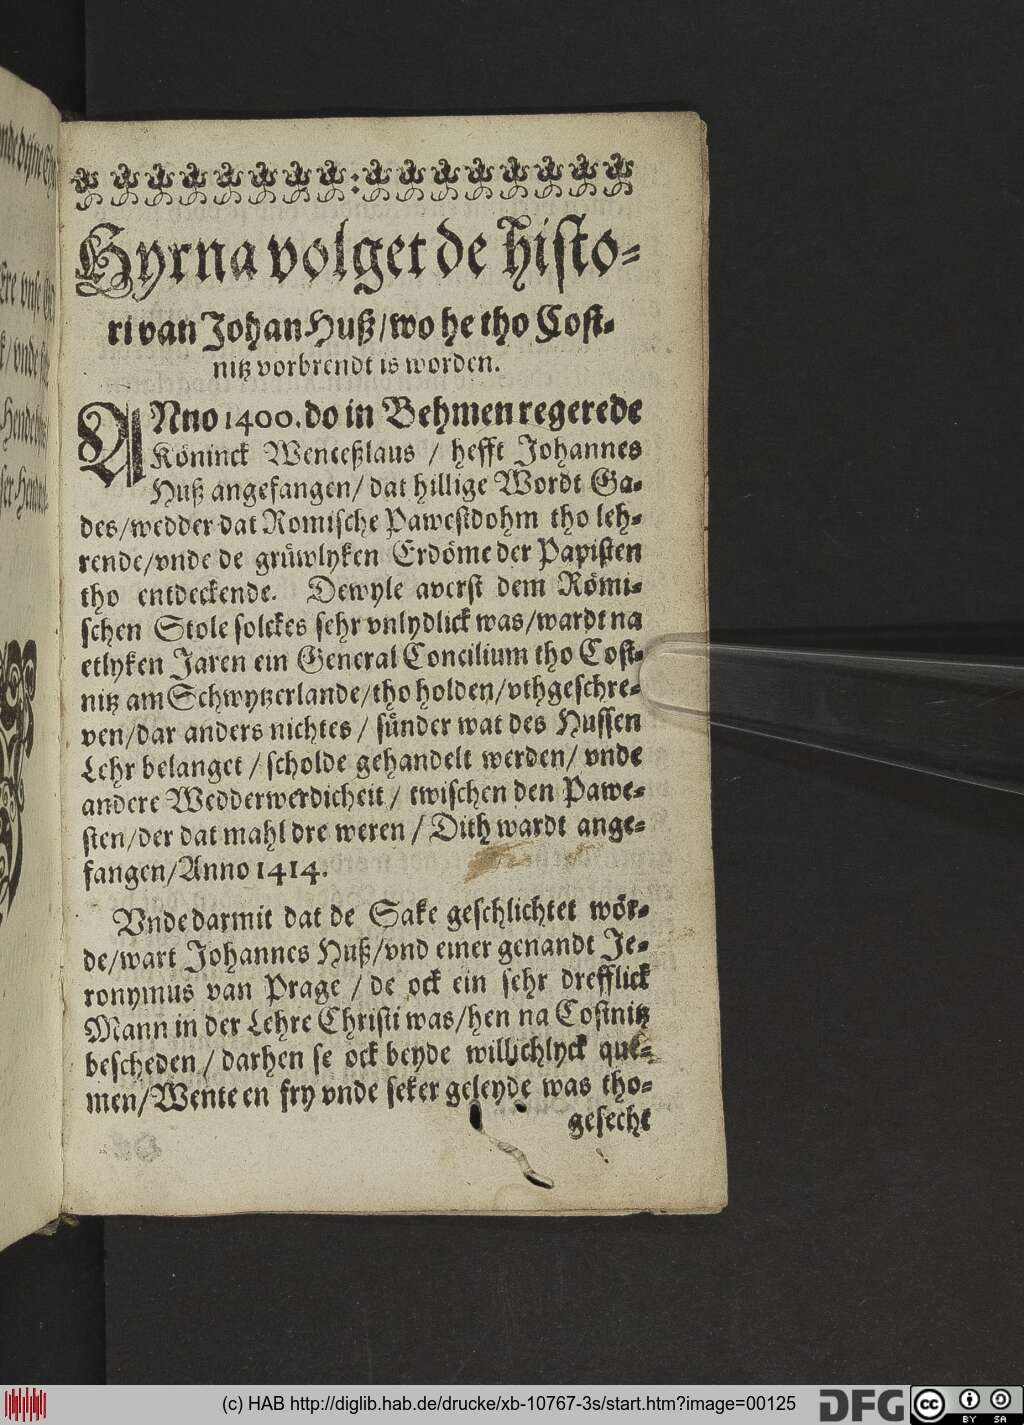 Hyrna volget de histo-
ri van Johan Huß/ wo he tho Cost-
nitz vorbrendt is worden.
ANno 1400. do in Behmen regerede
Köninck Wenceßlaus / hefft Johannes
Huß angefangen/ dat hillige Wordt Ga-
des/ wedder dat Romische Pawestdohm tho leh-
rende/ vnde de grüwlyken Erdöme der Papisten
tho entdeckende. Dewyle averst dem Römi-
schen Stole solckes sehr vnlydlick was/ wardt na
etlyken Jaren ein General Concilium tho Cost-
nitz am Schwytzerlande/ tho holden/ vthgeschre-
ven/ dar anders nichtes / sünder wat des Hussen
Lehr belanget / scholde gehandelt werden/ vnde
andere Wedderwerdicheit / twischen den Pawe-
sten/ der dat mahl dre weren / Dith wardt ange-
fangen/ Anno 1414.
Vnde darmit dat de Sake geschlichtet wör-
de/ wart Johannes Huß/ vnd einer genandt Je-
ronymus van Prage / de ock ein sehr drefflick
Mann in der Lehre Christi was/ hen na Costnitz
bescheden / darhen se ock beyde willichlyck que-
men/ Wente en fry vnde seker geleyde was tho-
gesecht
(c) HAB http://diglib.hab.de/drucke/xb-10767-3s/start.htm?image=00125
DFG
cc BY SA